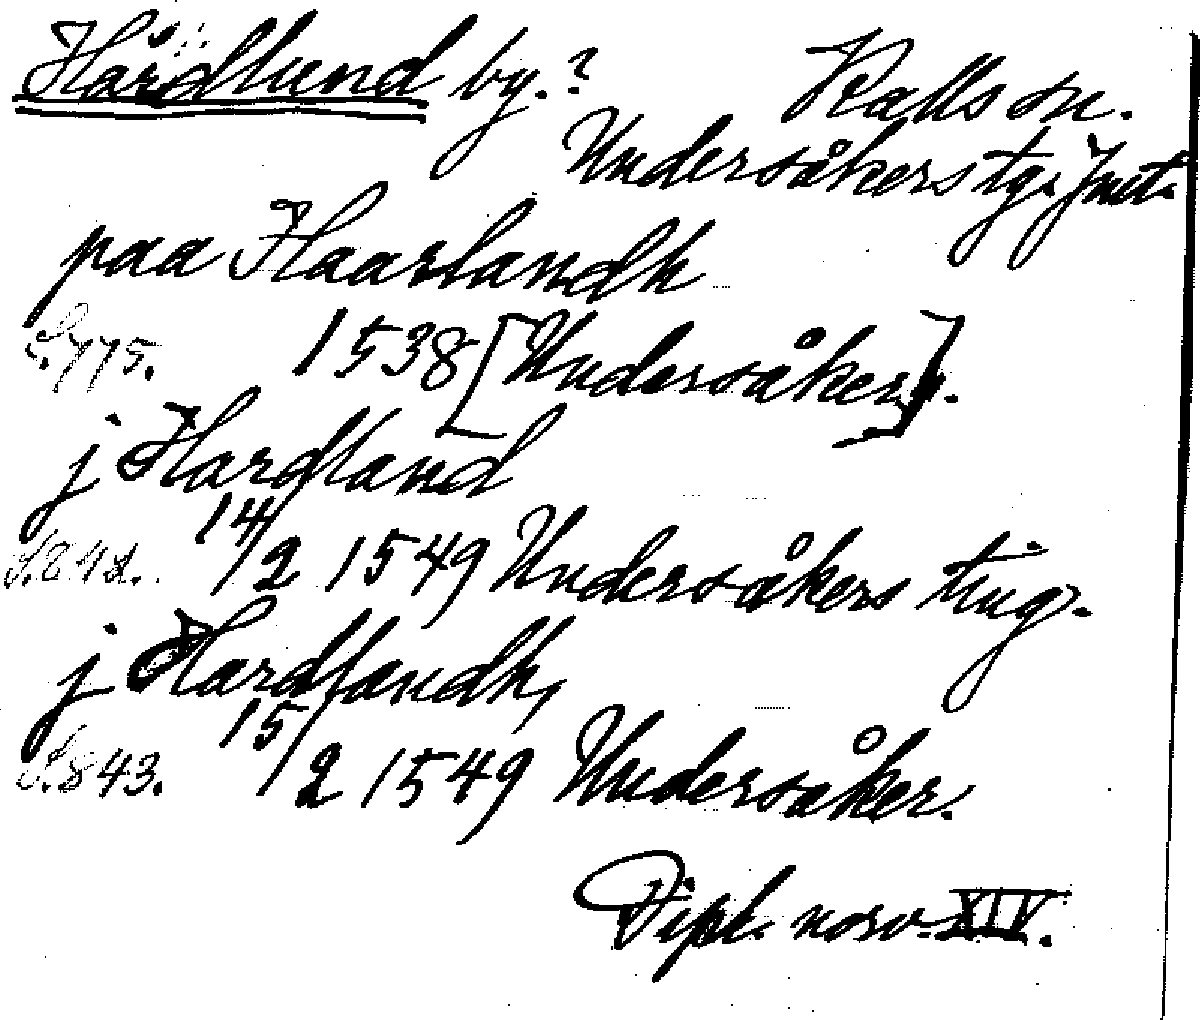 Hårdlund by.?
Kalls sn.
Undersåkers tg. Jmt.
paa Haarlandh
S. 775. 1538 [Undersåker].
j Hardland
S. 842. 14/2 1549 Undersåkers ting.
j Hardlandh,
S. 843. 15/2 1549 Undersåker.
Dipl. norv. XIV.